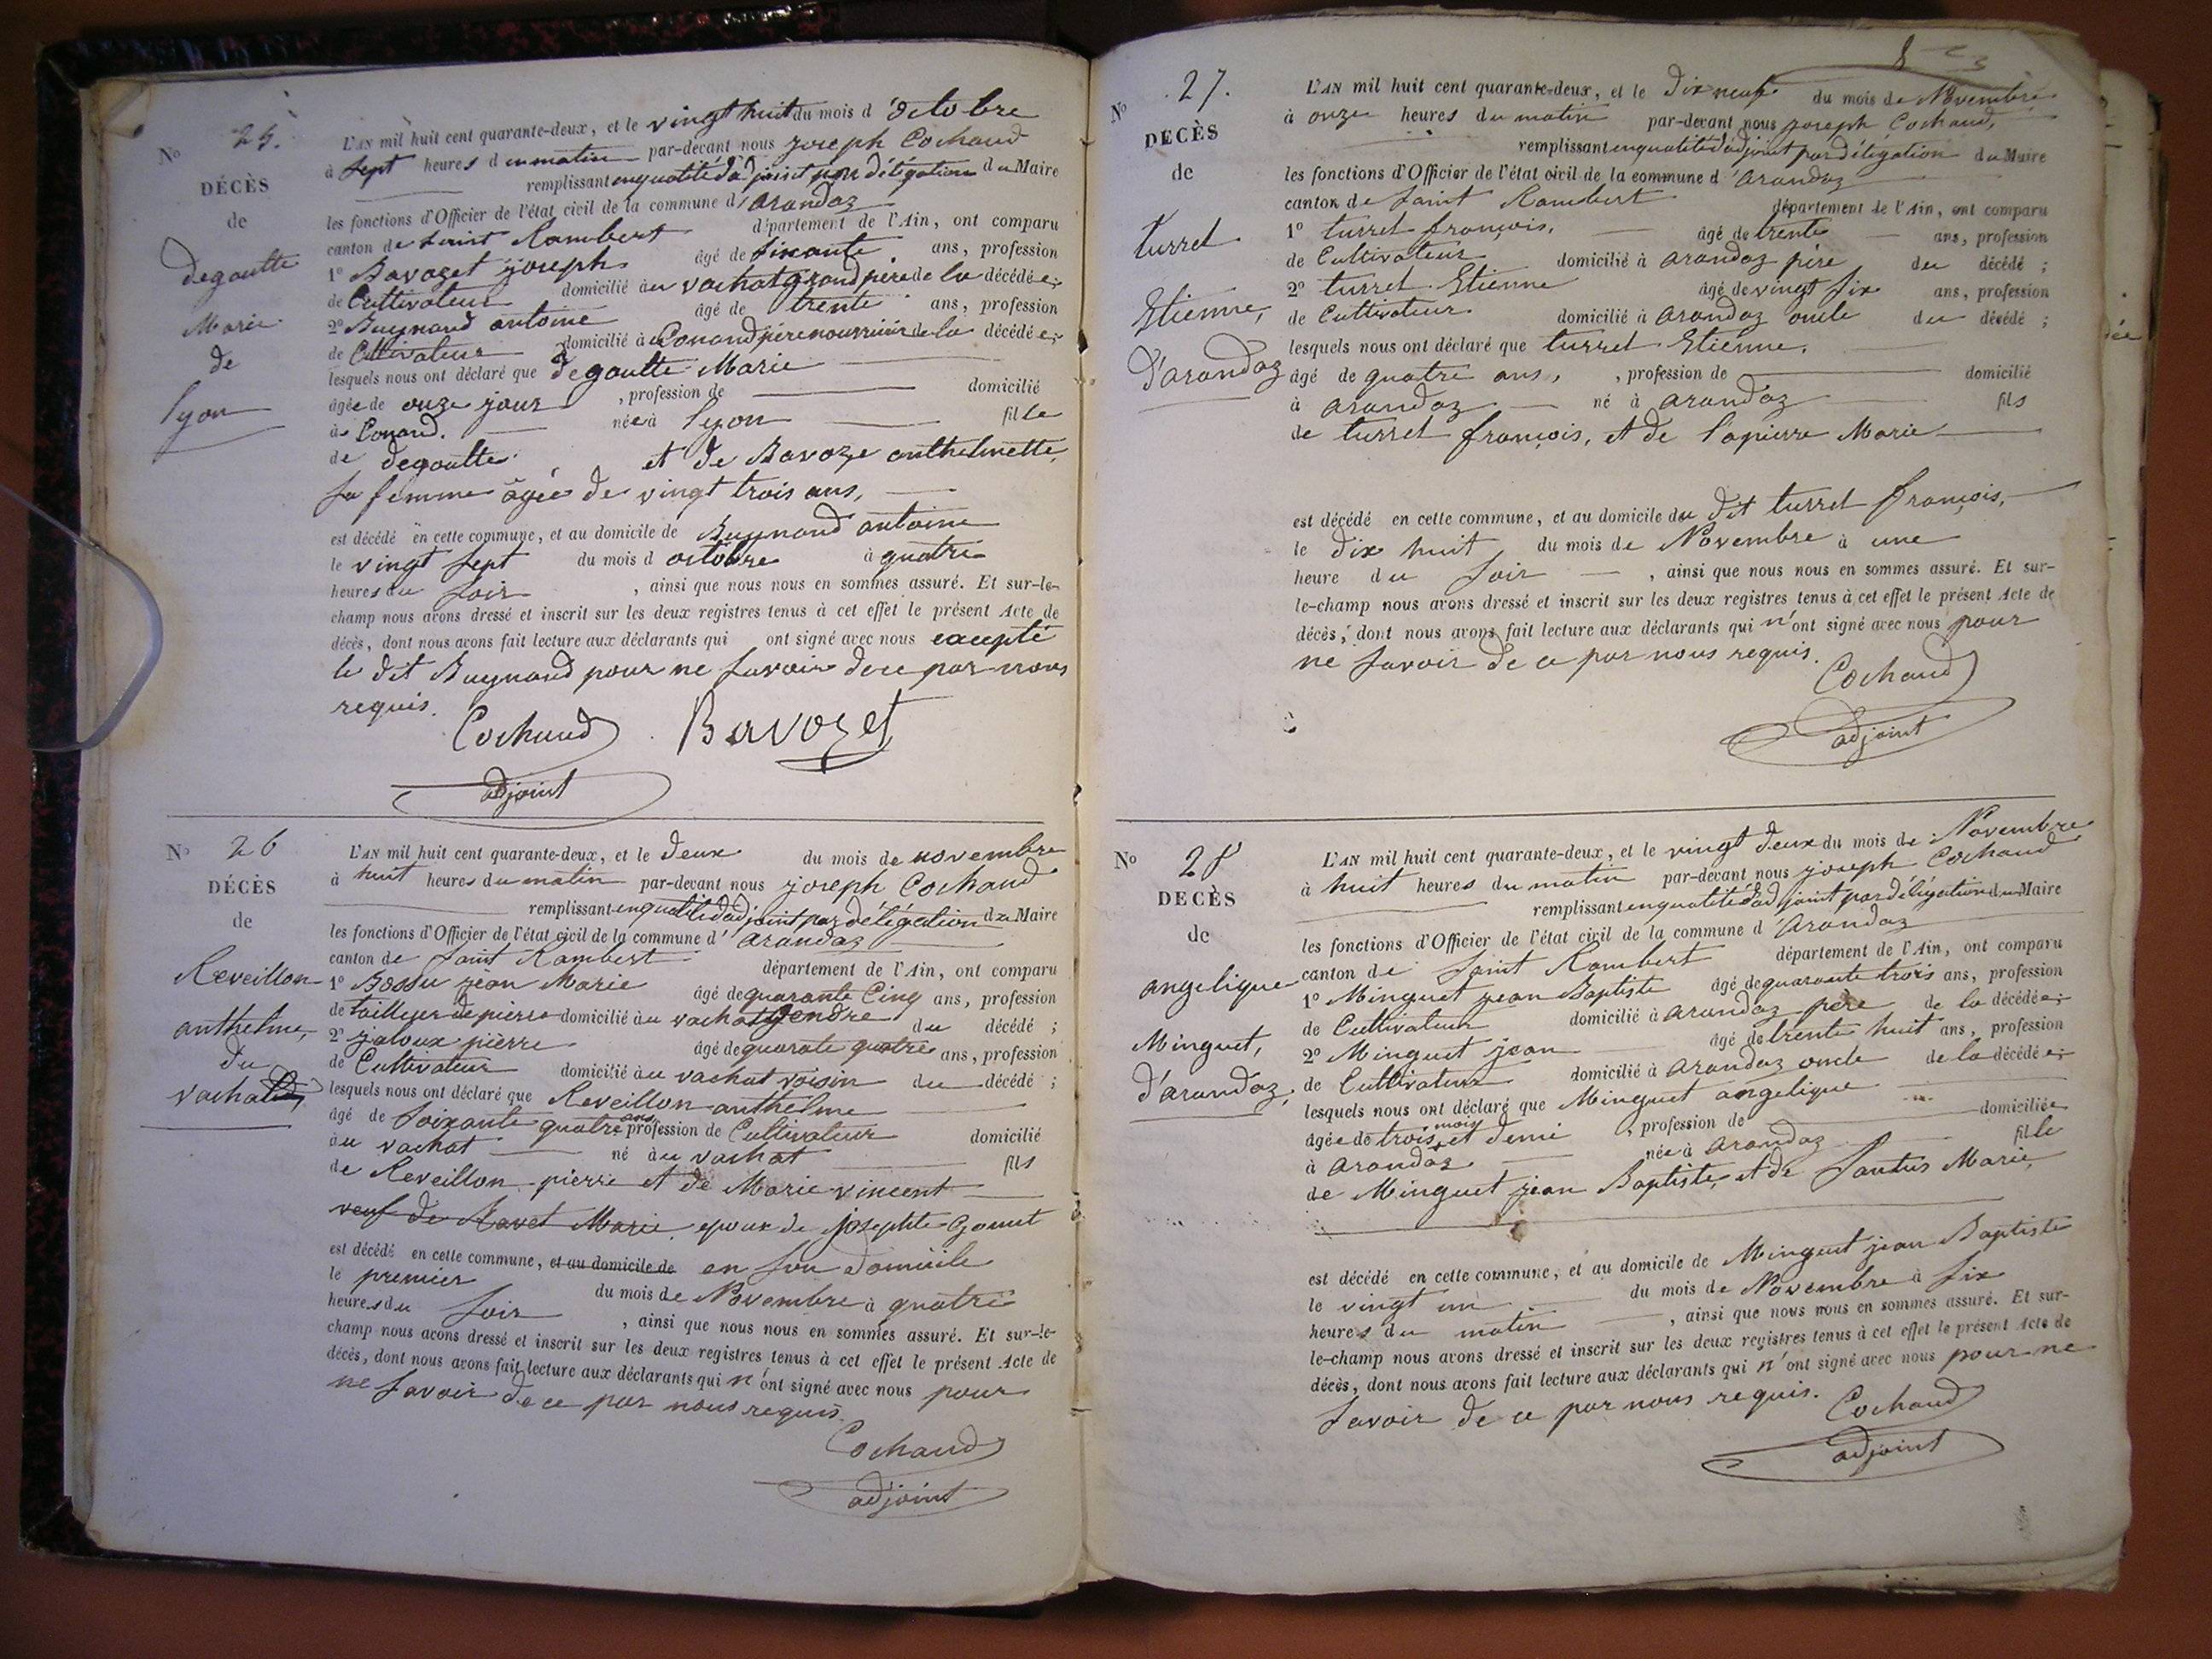 No 25.
DÉCÈS
de
degoutte
Marie
de
lyon
L'AN mil huit cent quarante-deux, et le vingt huit du mois d'octobre
à sept heures du matin par-devant nous joseph Cochaud
remplissant en qualité d'adjoint par délégation du Maire
les fonctions d'Officier de l'état civil de la commune d'arandaz
canton de saint Rambert département de l'Ain, ont comparu
1° Bavozet joseph âgé de sixante ans, profession
de Cultivateur domicilié au vachat grand père de la décédée;
2° Buynand antoine âgé de trente ans, profession
de Cultivateur domicilié à Conand père nourricier de la décédée;
lesquels nous ont déclaré que degoutte Marie
âgée de onze jour , profession de domicilié
à Conand. née à lyon fille
de degoutte et de Bavoze anthelmette
sa femme âgée de vingt trois ans,
est décédé en cette commune, et au domicile de Buynand antoine
le vingt sept du mois d octobre à quatre
heures du soir , ainsi que nous nous en sommes assuré. Et sur-le-
champ nous avons dressé et inscrit sur les deux registres tenus à cet effet le présent Acte de
décès, dont nous avons fait lecture aux déclarants qui ont signé avec nous excepté
le dit Buynand pour ne savoir de ce par nous
requis.
Cochaud Bavozet
adjoint
No 26
DÉCÈS
de
Reveillon
anthelme,
du
vachat
L'AN mil huit cent quarante-deux, et le deux du mois de novembre
à huit heures du matin par-devant nous joseph Cochaud
remplissant en qualité d'adjoint par délégation du Maire
les fonctions d'Officier de l'état civil de la commune d'arandaz
canton de saint Rambert département de l'Ain, ont comparu
1° Bossu jean Marie âgé de quarante Cinq ans, profession
de tailleur de pierre domicilié au vachat gendre du décédé;
2° jaloux pierre âgé de quarate quatre ans, profession
de Cultivateur domicilié au vachat voisin du décédé;
lesquels nous ont déclaré que Reveillon anthelme
âgé de soixante quatre ans profession de Cultivateur domicilié
au vachat né au vachat fils
de Reveillon pierre et de Marie vincent
veuf de Ravet Marie. epoux de josephte Gonnet
est décédé en cette commune, et au domicile de en son domicile
le premier du mois de Novembre à quatre
heures du soir , ainsi que nous nous en sommes assuré. Et sur-le-
champ nous avons dressé et inscrit sur les deux registres tenus à cet effet le présent Acte de
décès, dont nous avons fait lecture aux déclarants qui n'ont signé avec nous pour
ne savoir de ce par nous requis.
Cochaud
adjoint
No 27.
DÉCÈS
de
turrel
Etienne,
d'arandaz
L'AN mil huit cent quarante-deux, et le dix neuf du mois de Novembre
à onze heures du matin par-devant nous joseph Cochaud,
remplissant en qualité d'adjoint par délégation du Maire
les fonctions d'Officier de l'état civil de la commune d'arandaz
canton de saint Rambert département de l'Ain, ont comparu
1° turrel françois, âgé de trente ans, profession
de Cultivateur domicilié à arandaz père du décédé;
2° turrel Etienne âgé de vingt six ans, profession
de Cultivateur domicilié à arandaz oncle du décédé;
lesquels nous ont déclaré que turrel Etienne.
âgé de quatre ans, , profession de domicilié
à arandaz né à arandaz fils
de turrel françois, et de lapierre Marie
est décédé en cette commune, et au domicile du dit turrel françois,
le dix huit du mois de Novembre à une
heure du soir , ainsi que nous nous en sommes assuré. Et sur-
le-champ nous avons dressé et inscrit sur les deux registres tenus à cet effet le présent Acte de
décès, dont nous avons fait lecture aux déclarants qui n'ont signé avec nous pour
ne savoir de ce par nous requis.
Cochaud
adjoint
No 28
DÉCÈS
de
angelique
Minguet,
d'arandaz,
L'AN mil huit cent quarante-deux, et le vingt deux du mois de Novembre
à huit heures du matin par-devant nous joseph Cochaud
remplissant en qualité d'adjoint par délégation du Maire
les fonctions d'Officier de l'état civil de la commune d'arandaz
canton de saint Rambert département de l'Ain, ont comparu
1° Minguet jean Baptiste âgé de quarante trois ans, profession
de Cultivateur domicilié à arandaz père de la décédée;
2° Minguet jean âgé de trente huit ans, profession
de Cultivateur domicilié à arandaz oncle de la décédée;
lesquels nous ont déclaré que Minguet angelique
âgée de trois mois et demi , profession de domiciliée
à arandaz née à arandaz fille
de Minguet jean Baptiste, et de Santus Marie,
est décédé en cette commune, et au domicile de Minguet jean Baptiste
le vingt un du mois de Novembre à six
heures du matin , ainsi que nous nous en sommes assuré. Et sur-
le-champ nous avons dressé et inscrit sur les deux registres tenus à cet effet le présent Acte de
décès, dont nous avons fait lecture aux déclarants qui n'ont signé avec nous pour ne
savoir de ce par nous requis.
Cochaud
adjoint